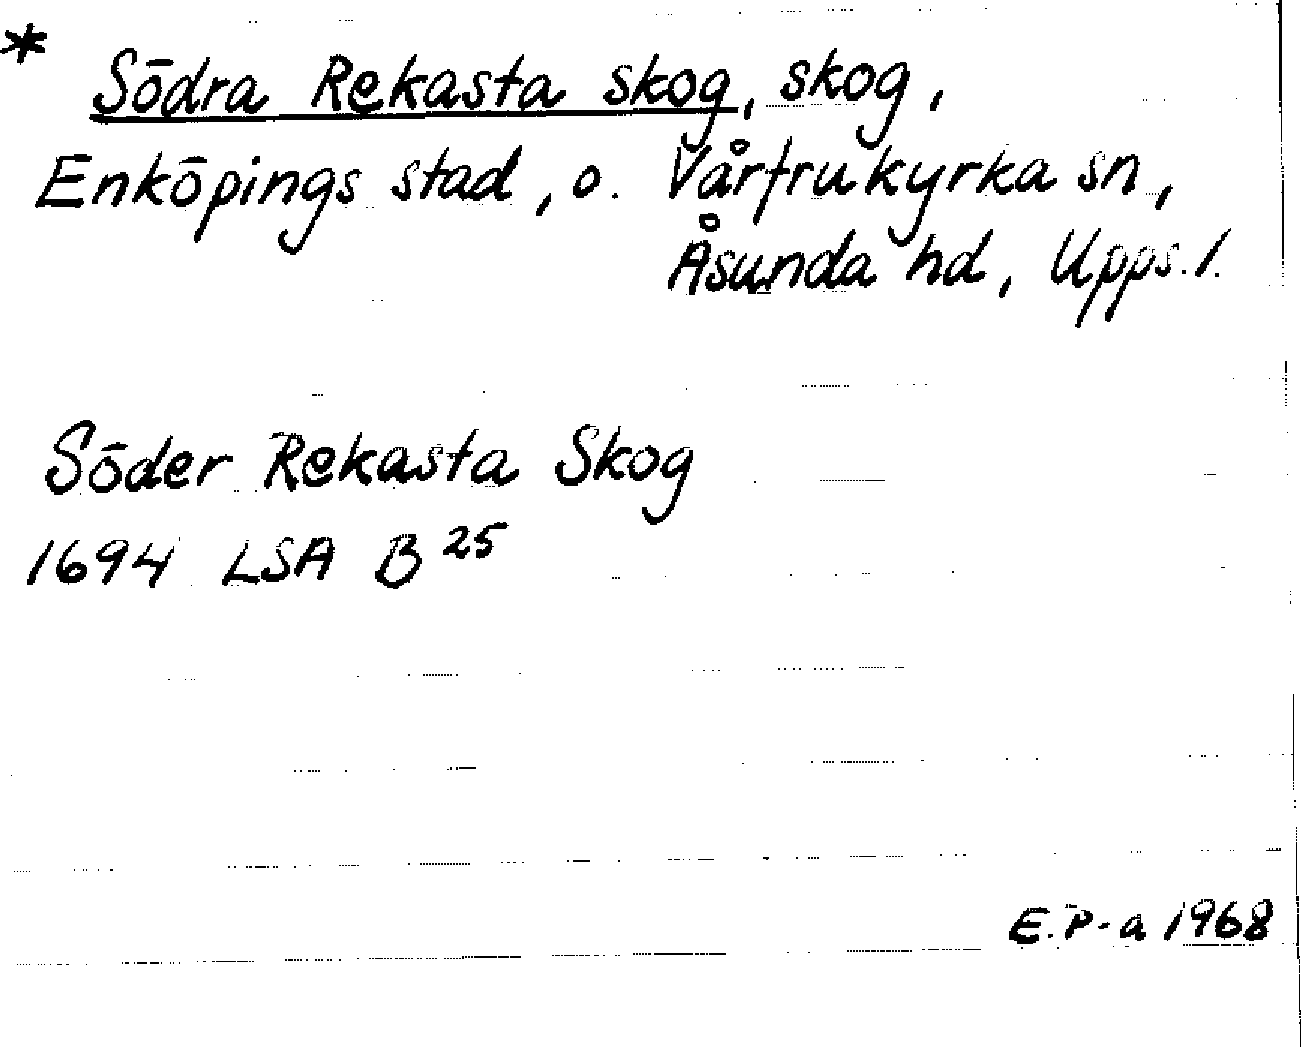 * Södra Rekasta skog, skog,
Enköpings stad, o. Vårfrukyrka sn,
Åsunda hd, Upps. l.
Söder Rekasta Skog
1694 LSA B 25
E. P-a 1968